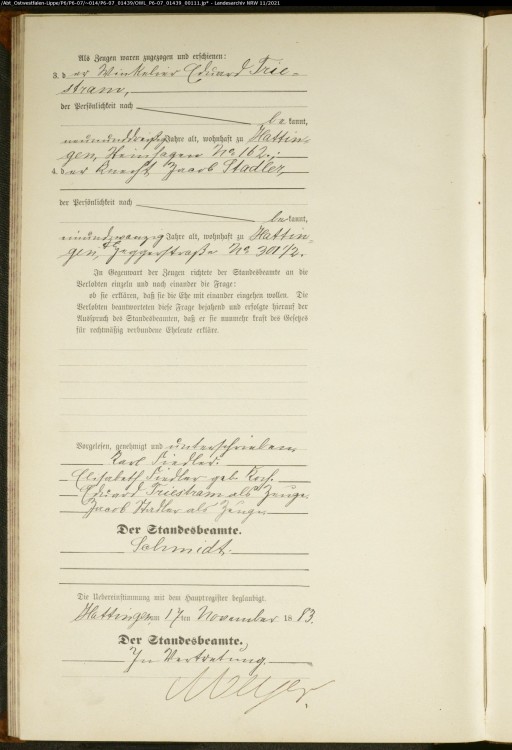 /Abt_Ostwestfalen-Lippe/P6/P6-07/~014/P6-07_01439/OWL_P6-07_01439_00111.jp* - Landesarchiv NRW 11/2021
Als Zeugen waren zugezogen und erschienen:
3. der Winkelier Eduard Trie-
stram,
der Persönlichkeit nach
bekannt,
neununddreißig Jahre alt, wohnhaft zu Hattin-
gen, Heinhagen No 162.;
4. der Knecht Jacob Stadler,
der Persönlichkeit nach
bekannt,
einundzwanzig Jahre alt, wohnhaft zu Hattin-
gen, No 301 1/2.
In Gegenwart der Zeugen richtete der Standesbeamte an die
Verlobten einzeln und nach einander die Frage:
ob sie erklären, daß sie die Ehe mit einander eingehen wollen. Die
Verlobten beantworteten diese Frage bejahend und erfolgte hierauf der
Ausspruch des Standesbeamten, daß er sie nunmehr kraft des Gesetzes
für rechtmäßig verbundene Eheleute erkläre.
Vorgelesen, genehmigt und unterschrieben
Karl Fiedler.
Elisabeth Fiedler geb. Koch.
Eduard Triestram als Zeuge.
Jacob Stadler als Zeuge.
Der Standesbeamte.
Schmidt.
Die Uebereinstimmung mit dem Hauptregister beglaubigt.
Hattingen am 17ten November 1883.
Der Standesbeamte.
In Vertretung.
Meyer